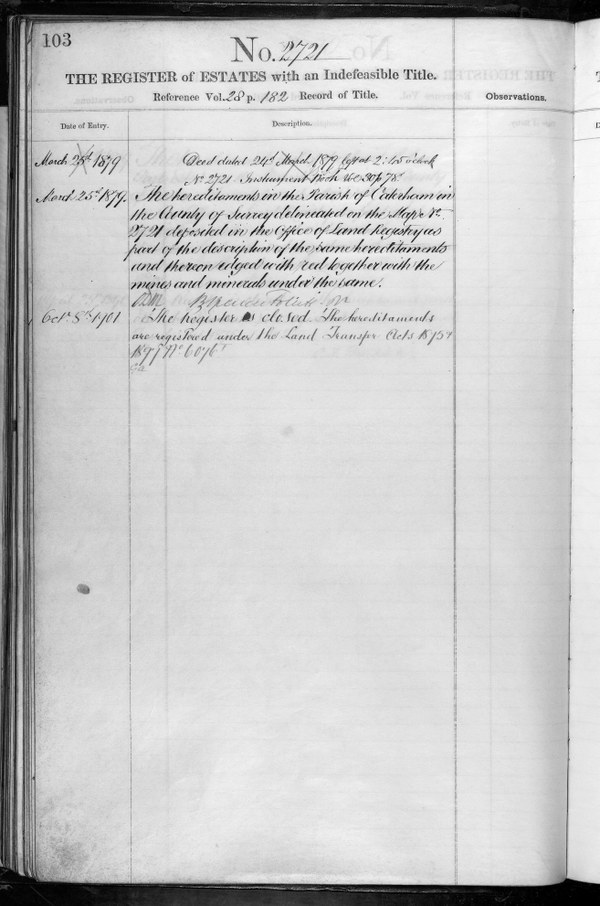 103
No. 2721
THE REGISTER of ESTATES with an Indefeasible Title.
Reference Vol. 28 p. 182 Record of Title.
Observations.
Date of Entry.
Description.
March 25th 1879
Deed dated 24th March 1879 left at 2:15 o'clock
No 2721 Instrument Book
March 25th 1879.
The hereditaments in the Parish of Caterham in
the County of Surrey delineated on the Map No
2721 deposited in the Office of Land Registry as
part of the description of the same hereditaments
and thereon edged with red together with the
mines and minerals under the same.
Octr 8th 1901
The Register is closed. The hereditaments
are registered under the Land Transfer Acts 1875 &
1897 No 6076